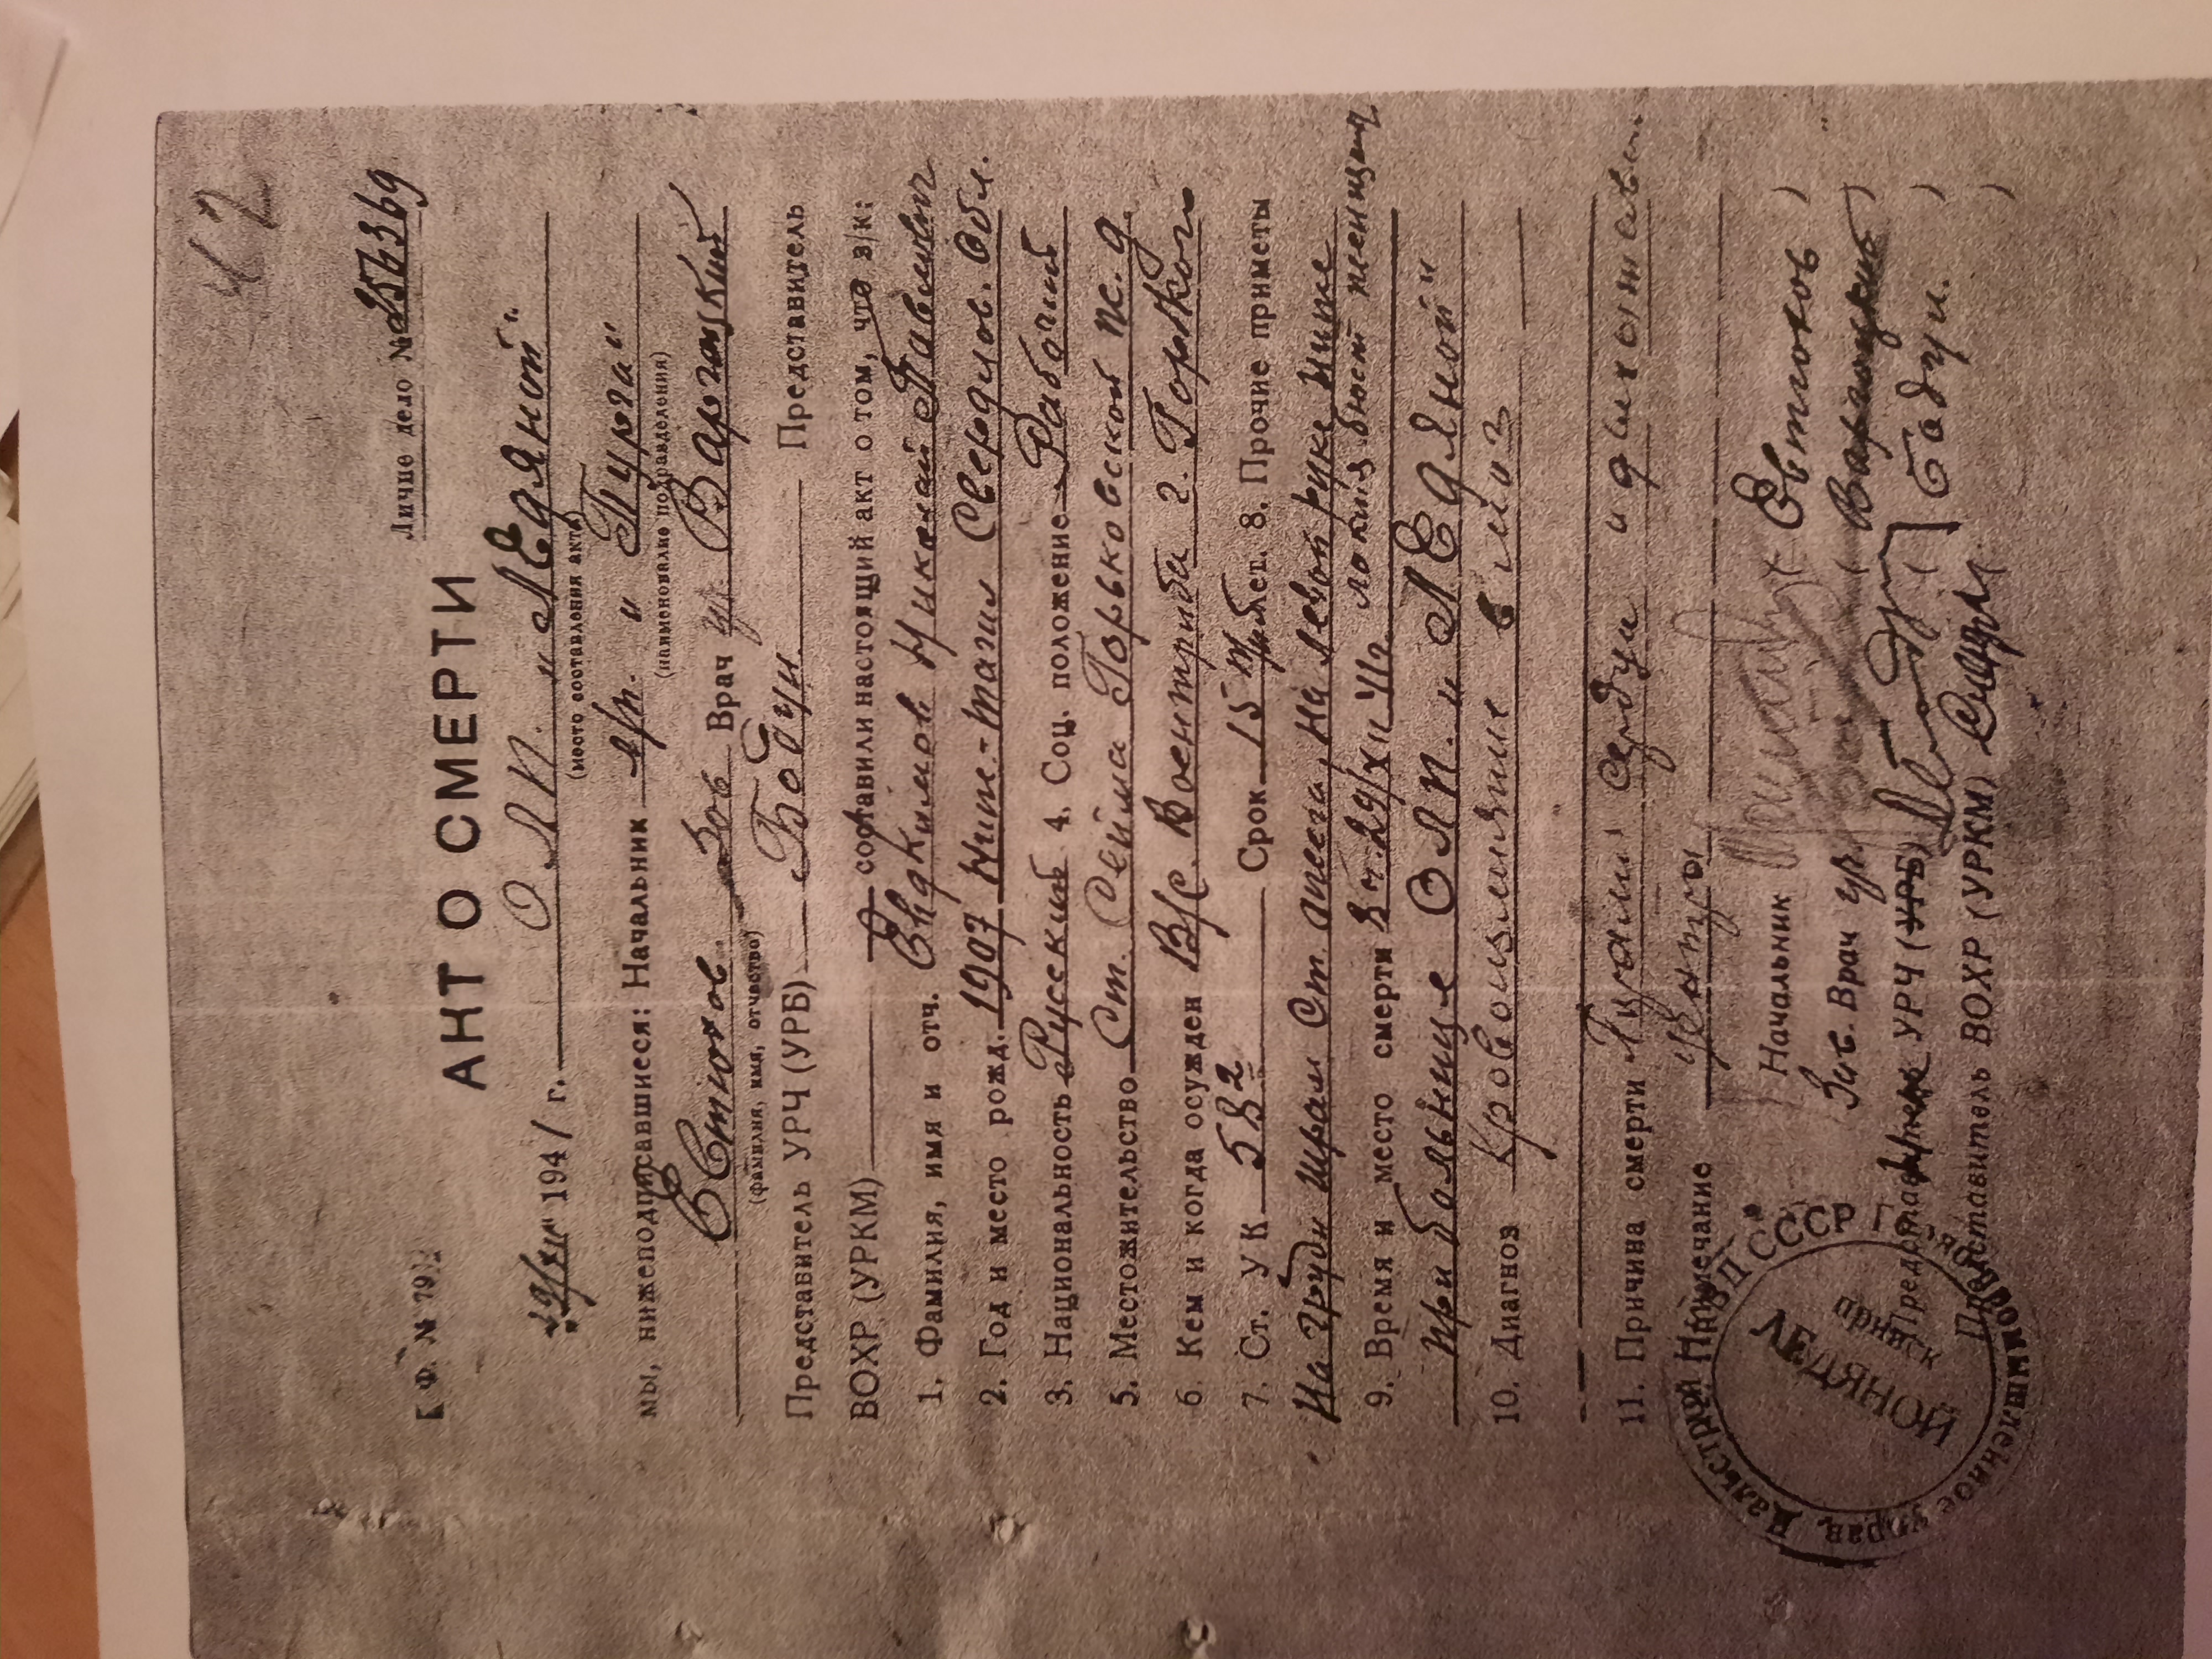 42
Личне дело № 256369
[Ф. № 79]
АКТ О СМЕРТИ
29/XII 1941 г. ОЛП. „ЛЕдяной"
(место составления акта)
мы, нижеподписавшиеся: Начальник „Пурга"
(наименование подразделения)
ЕВстюков Врач
(фамилия, имя, отчество)
Представитель УРЧ (УРБ) Представитель
ВОХР (УРКМ) составили настоящий акт о том, что з/к:
1. Фамилия, имя и отч. Евдкимов Николай Павлович
2. Год и место рожд. 1907 Ниж-Тагил Свердлов. Обл.
3. Национальность Русский 4. Соц. положение Рабочий
5. Местожительство Ст. Сейма Горьковской ж.д
6. Кем и когда осужден В/С. Воентрибу г. Горьком
7. Ст. УК 582 Срок 15 лет. 8. Прочие приметы
На груди шрам На левой руке ниже
локтя бюст женщин
9. Время и место смерти 29/XII 41г.
при больнице ОЛП. „ЛЕдяной"
10. Диагноз Кровоизлияние в мозг
11. Причина смерти сердца и дыхательн
центра
Примечание
Начальник Евтюков )
Зав. Врач ( )
Представитель УРЧ (УРБ) ( )
Представитель ВОХР (УРКМ) )
НКВД СССР Дальстрой
Горнопромышленное Управ.
прииск
ЛЕДЯНОЙ